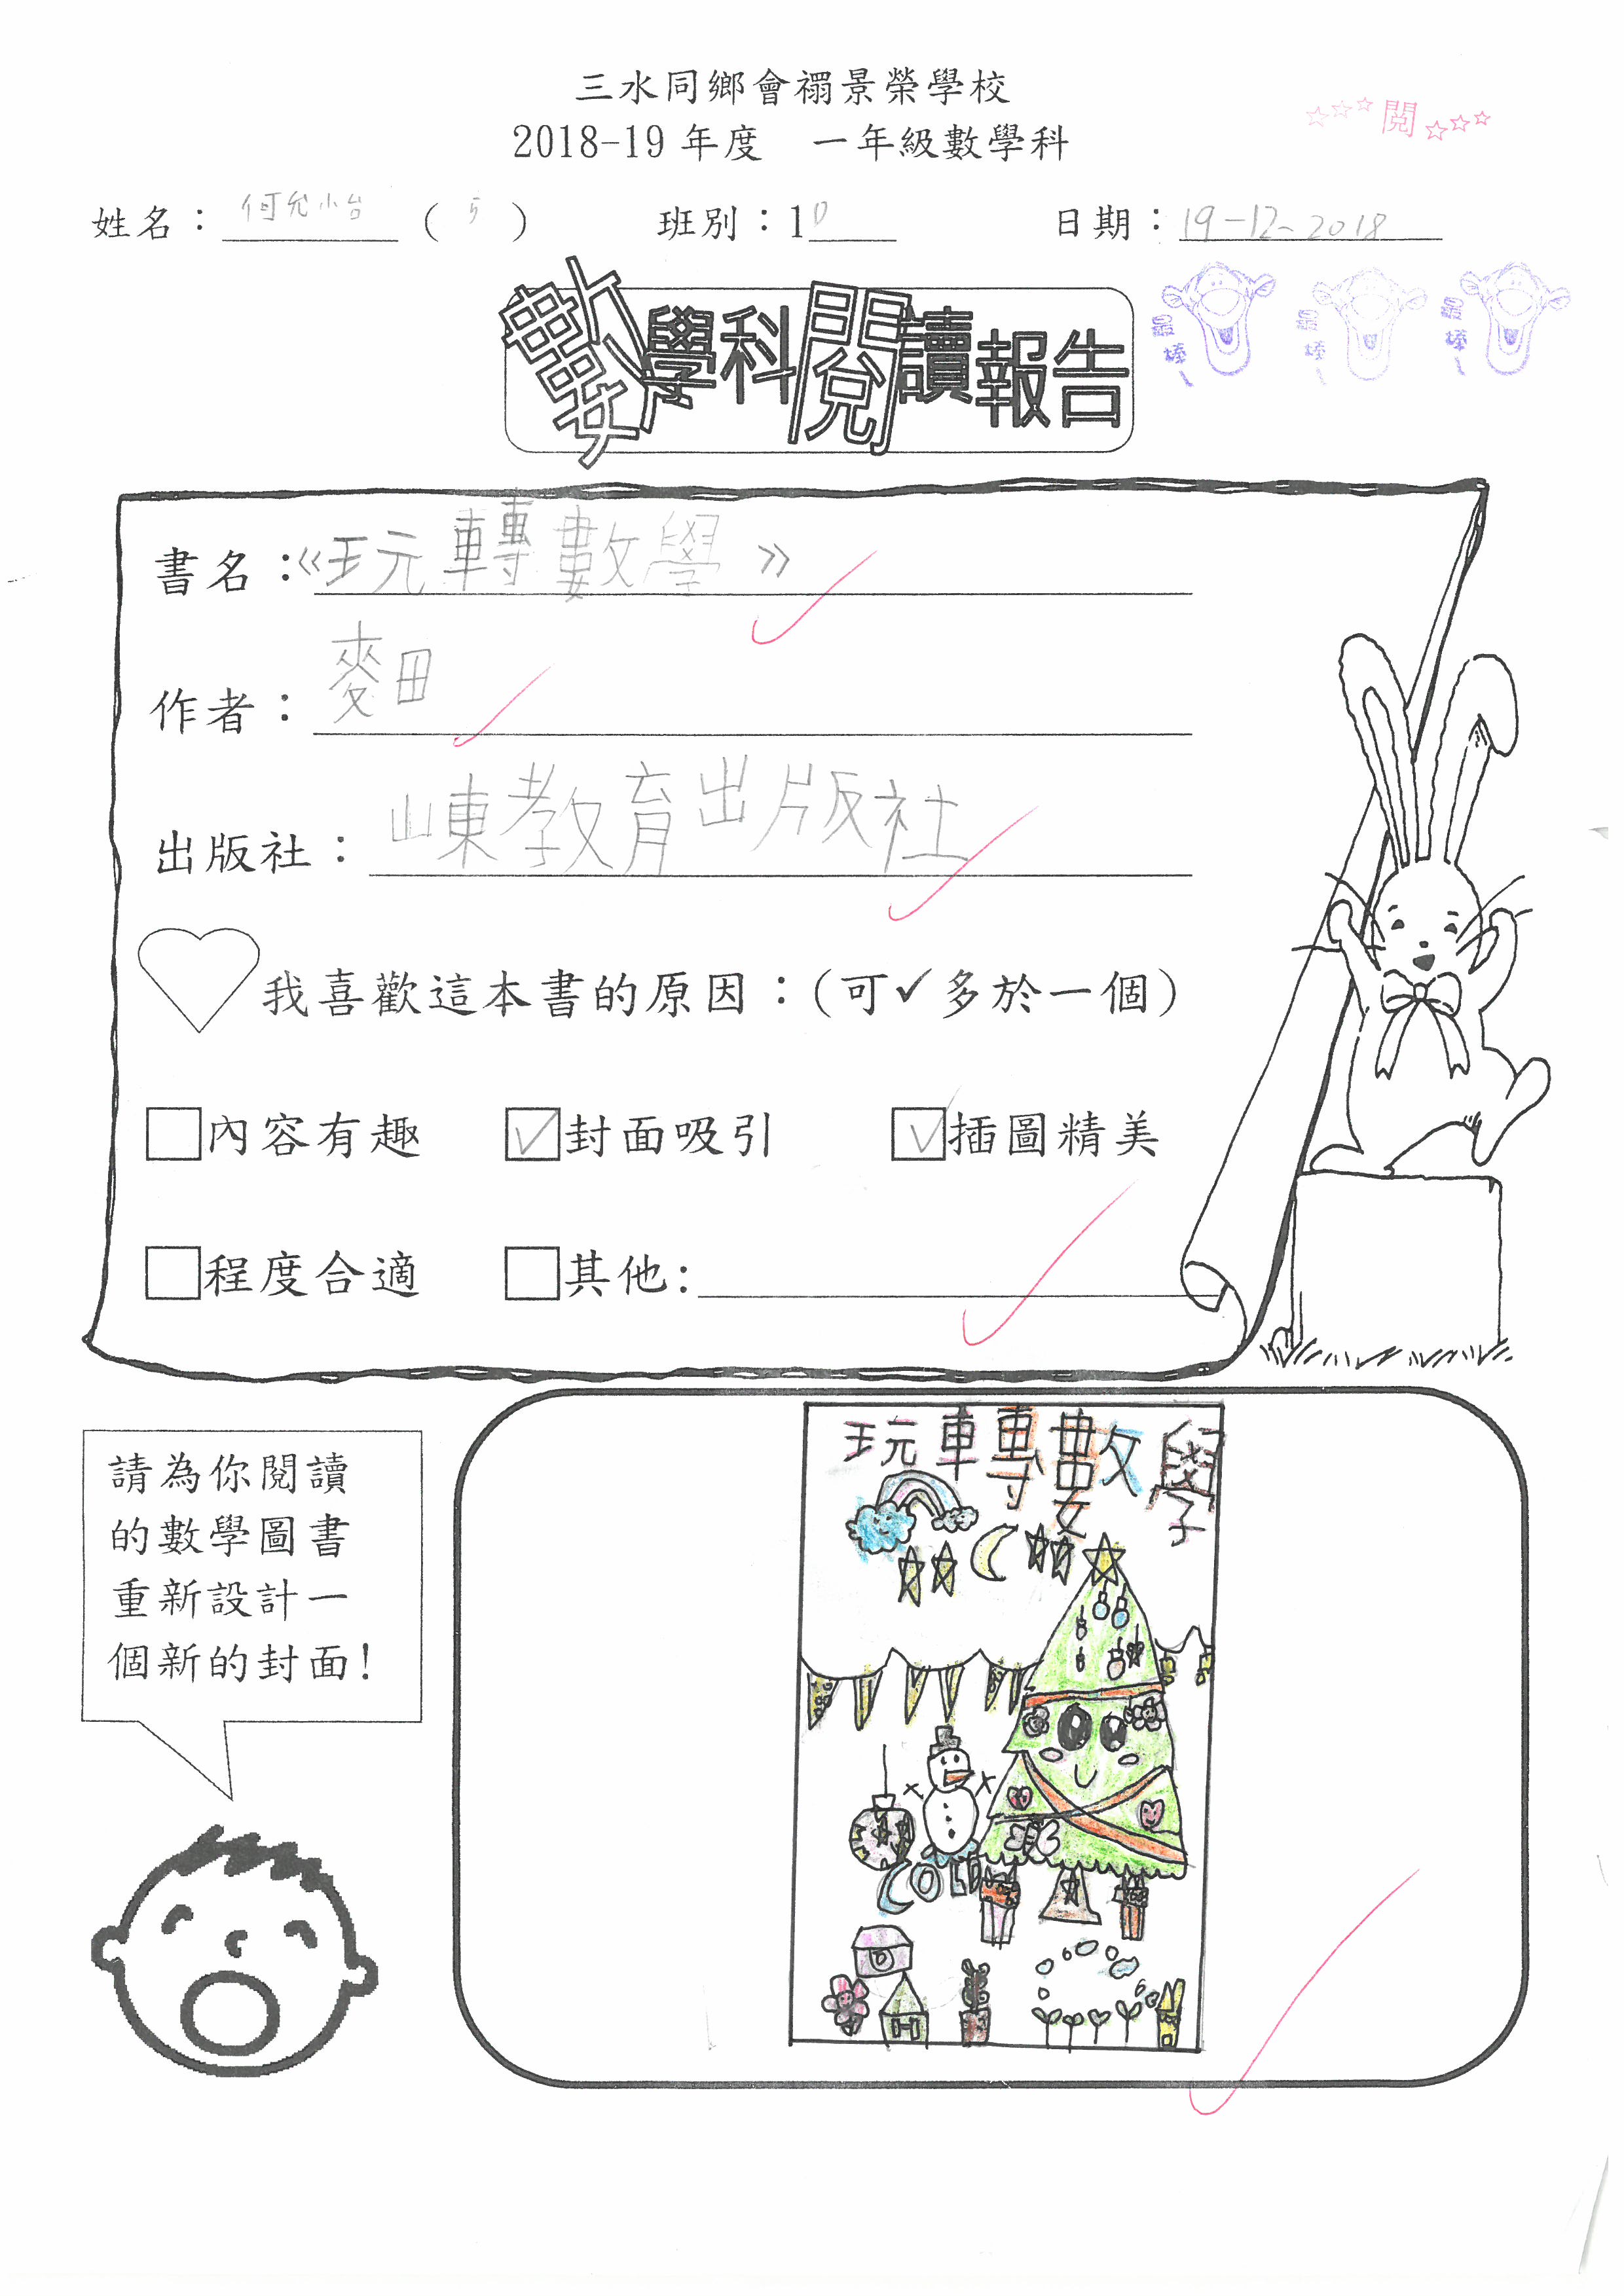 三水同鄉會禤景榮學校
2018-19 年度 一年級數學科
☆☆☆閱☆☆☆
姓名：何允怡 ( 5 ) 班別：1D 日期：19-12-2018
數學科閱讀報告
最棒~ 最棒~ 最棒~
書名：《玩轉數學》
作者：麥田
出版社：山東教育出版社
我喜歡這本書的原因：(可✓多於一個)
□內容有趣 ☑封面吸引 ☑插圖精美
□程度合適 □其他:
請為你閱讀
的數學圖書
重新設計一
個新的封面!
玩轉數學
COLD